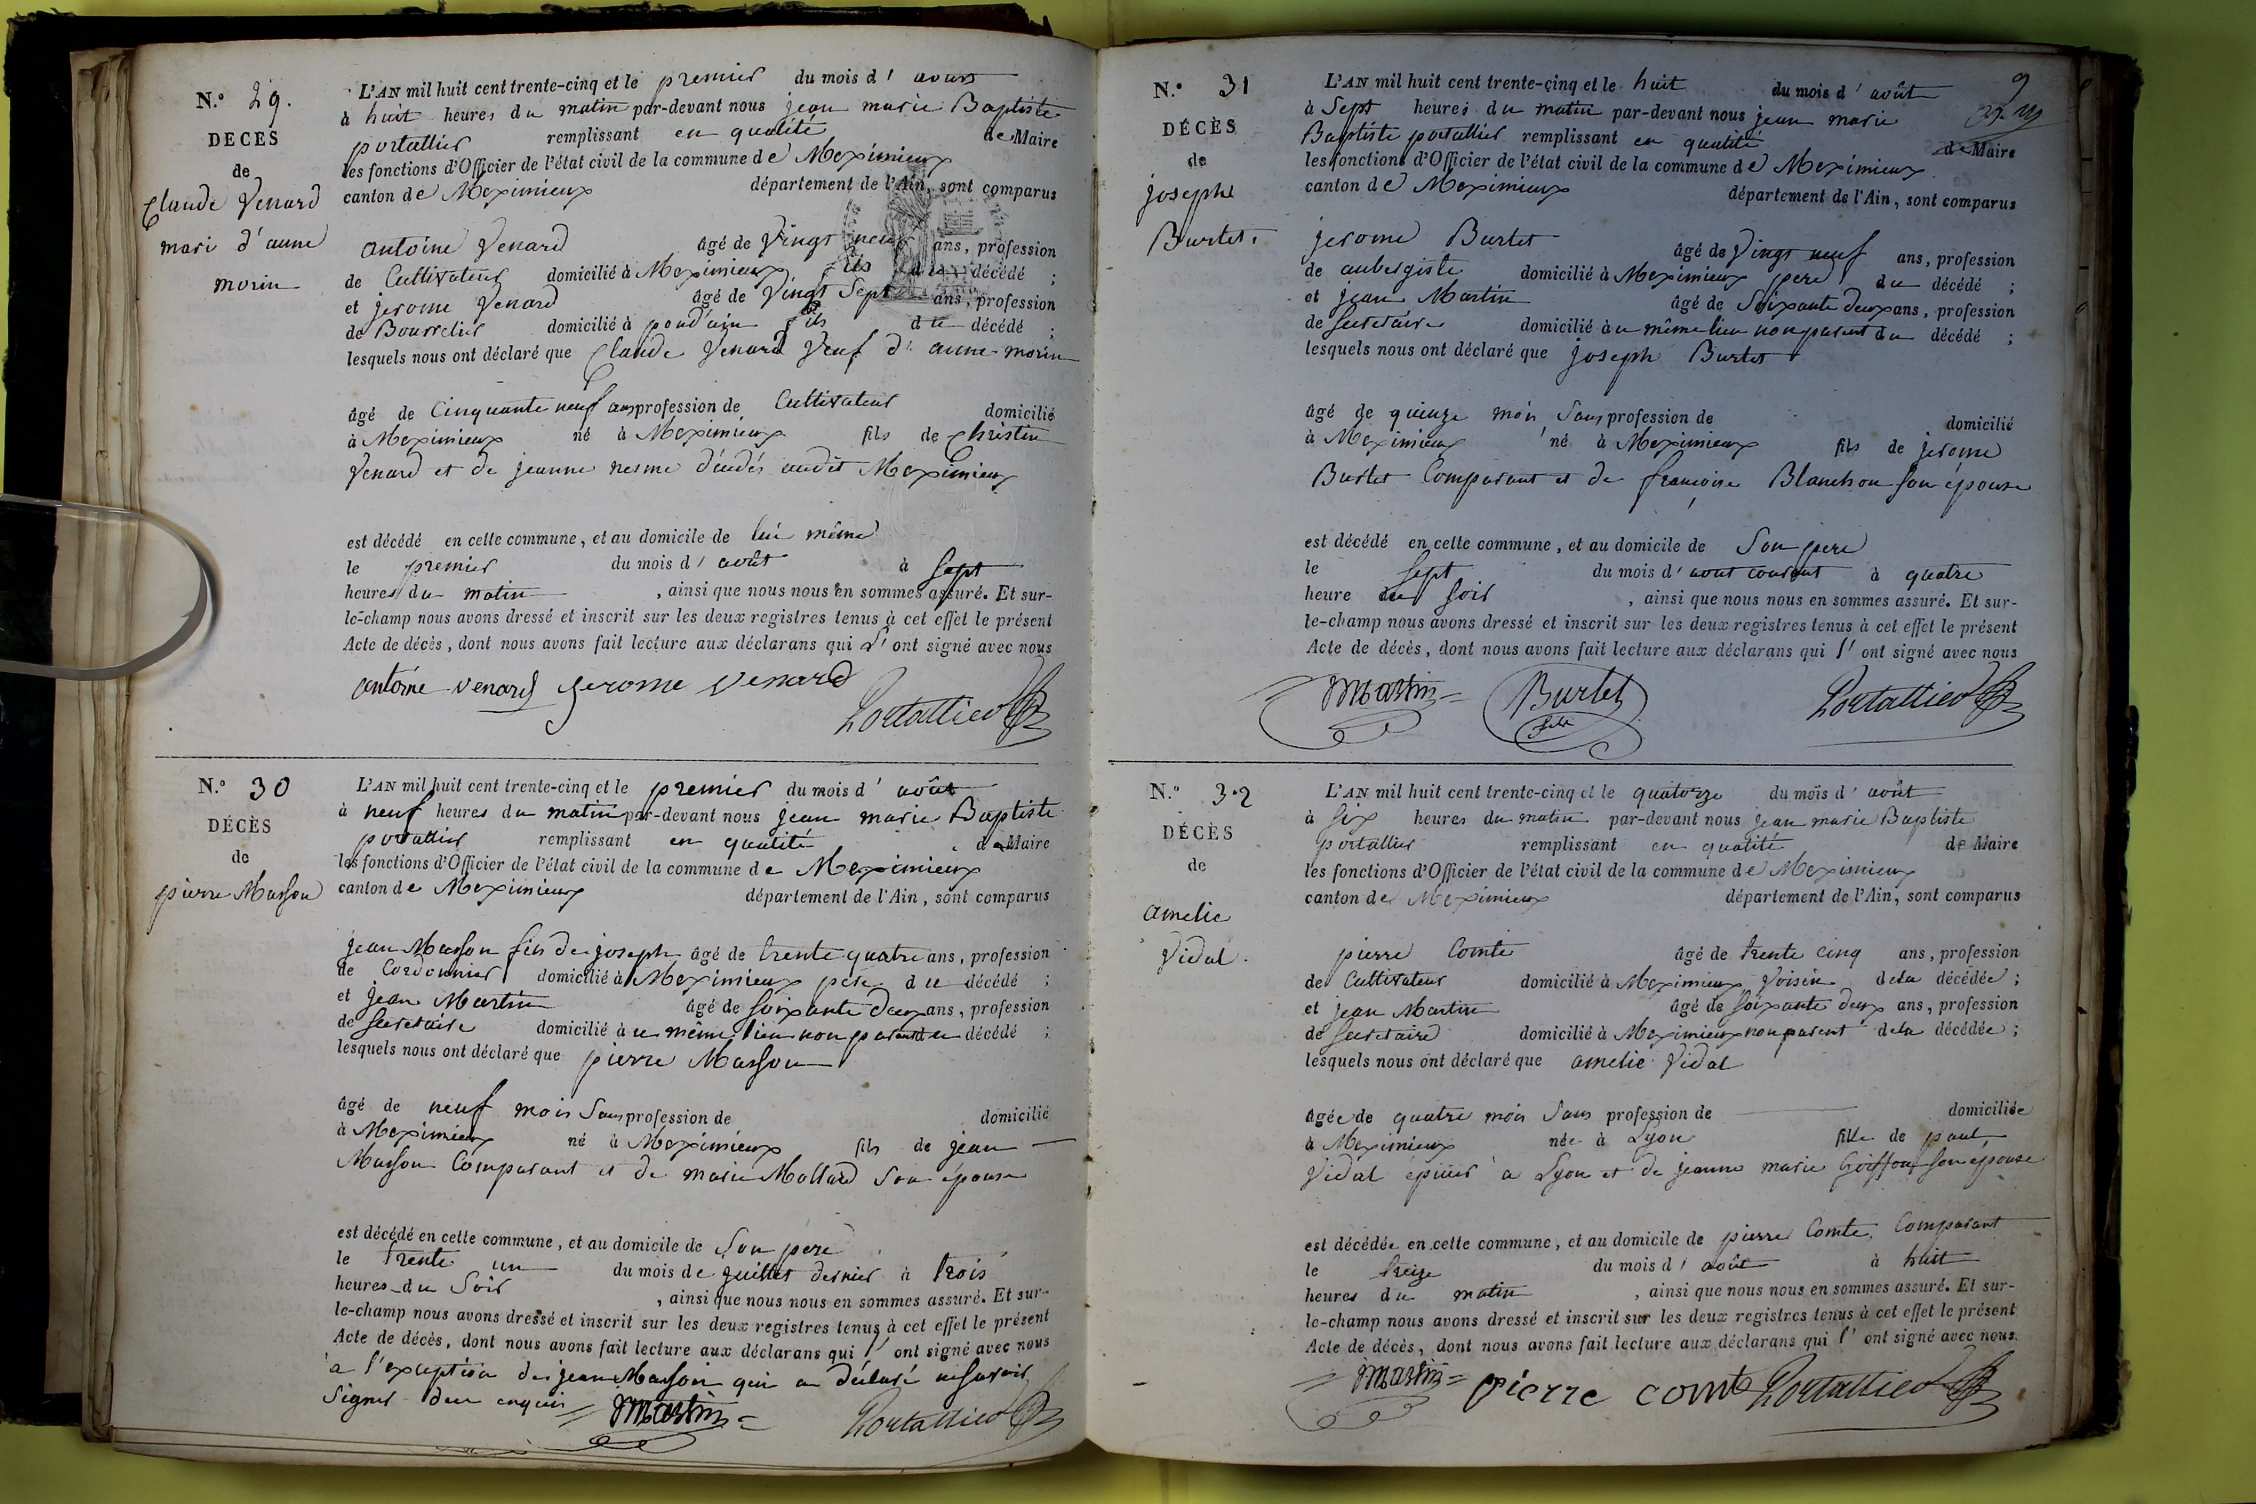 N.o 29.
DÉCÈS
de
Claude Venard
mari d'anne
morin
L'AN mil huit cent trente-cinq et le premier du mois d'
à huit heures du matin par-devant nous jean marie Baptiste
portallier remplissant en qualité de Maire
les fonctions d'Officier de l'état civil de la commune de Meximieux
canton de Meximieux département de l'Ain, sont comparus
antoine Venard âgé de Vingt neuf ans, profession
de Cultivateur domicilié à Meximieux fils du décédé ;
et jerome Venard âgé de Vingt Sept ans, profession
de Bourrelier domicilié à fils du décédé ;
lesquels nous ont déclaré que Claude Venard Veuf d'anne morin
âgé de Cinquante neuf ans profession de Cultivateur domicilié
à Meximieux né à Meximieux fils de Christin
Venard et de jeanne nesme audit Meximieux
est décédé en cette commune, et au domicile de lui même
le premier du mois d'août à Sept
heures du matin , ainsi que nous nous en sommes assuré. Et sur-
le-champ nous avons dressé et inscrit sur les deux registres tenus à cet effet le présent
Acte de décès, dont nous avons fait lecture aux déclarans qui l'ont signé avec nous
antoine venard jerome venard
Portallier
N.o 30
DÉCÈS
de
pierre Masson
L'AN mil huit cent trente-cinq et le premier du mois d'août
à neuf heures du matin par-devant nous jean marie Baptiste
portallier remplissant en qualité de Maire
les fonctions d'Officier de l'état civil de la commune de Meximieux
canton de Meximieux département de l'Ain, sont comparus
jean Masson fils de joseph âgé de trente quatre ans, profession
de Cordonnier domicilié à Meximieux père du décédé ;
et jean Martin âgé de Soixante deux ans, profession
de Secretaire domicilié à u même lieu non parent du décédé ;
lesquels nous ont déclaré que pierre Masson
âgé de neuf mois Sans profession de domicilié
à Meximieux né à Meximieux fils de jean
Masson Comparant et de marie Mollard Son épouse
est décédé en cette commune, et au domicile de Son pere
le trente un du mois de juillet dernier à trois
heures du Soir , ainsi que nous nous en sommes assuré. Et sur-
le-champ nous avons dressé et inscrit sur les deux registres tenus à cet effet le présent
Acte de décès, dont nous avons fait lecture aux déclarans qui l'ont signé avec nous
a l'exception de jean Masson qui a déclaré ne savoir
Signer de ce enquis Martin Portallier
N.o 31
DÉCÈS
de
joseph
Burlet.
9
L'AN mil huit cent trente-cinq et le huit du mois d'août
à Sept heures du matin par-devant nous jean marie
Baptiste portallier remplissant en qualité de Maire
les fonctions d'Officier de l'état civil de la commune de Meximieux
canton de Meximieux département de l'Ain, sont comparus
jerome Burlet âgé de Vingt neuf ans, profession
de aubergiste domicilié à Meximieux pere du décédé ;
et jean Martin âgé de Soixante deux ans, profession
de Secretaire domicilié à u même lieu non parent du décédé ;
lesquels nous ont déclaré que joseph Burlet
âgé de quinze mois Sans profession de domicilié
à Meximieux né à Meximieux fils de jerome
Burlet Comparant et de francoise Blanchon Son épouse
est décédé en cette commune, et au domicile de Son pere
le Sept du mois d'aout courant à quatre
heure du Soir , ainsi que nous nous en sommes assuré. Et sur-
le-champ nous avons dressé et inscrit sur les deux registres tenus à cet effet le présent
Acte de décès, dont nous avons fait lecture aux déclarans qui l'ont signé avec nous
Martin Burlet Portallier
N.o 32
DÉCÈS
de
amelie
Vidal.
L'AN mil huit cent trente-cinq et le quatorze du mois d'août
à Six heures du matin par-devant nous jean marie Baptiste
portallier remplissant en qualité de Maire
les fonctions d'Officier de l'état civil de la commune de Meximieux
canton de Meximieux département de l'Ain, sont comparus
pierre Comte âgé de trente cinq ans, profession
de Cultivateur domicilié à Meximieux Voisin de la décédée ;
et jean Martin âgé de Soixante deux ans, profession
de Secretaire domicilié à Meximieux non parent de la décédée ;
lesquels nous ont déclaré que amelie Vidal
âgée de quatre mois Sans profession de domiciliée
à Meximieux née à Lyon fille de paul
Vidal epicier à Lyon et de jeanne marie Goiffon Son epouse
est décédée en cette commune, et au domicile de pierre Comte Comparant
le treize du mois d'août à huit
heures du matin , ainsi que nous nous en sommes assuré. Et sur-
le-champ nous avons dressé et inscrit sur les deux registres tenus à cet effet le présent
Acte de décès, dont nous avons fait lecture aux déclarans qui l'ont signé avec nous.
Martin pierre comte Portallier